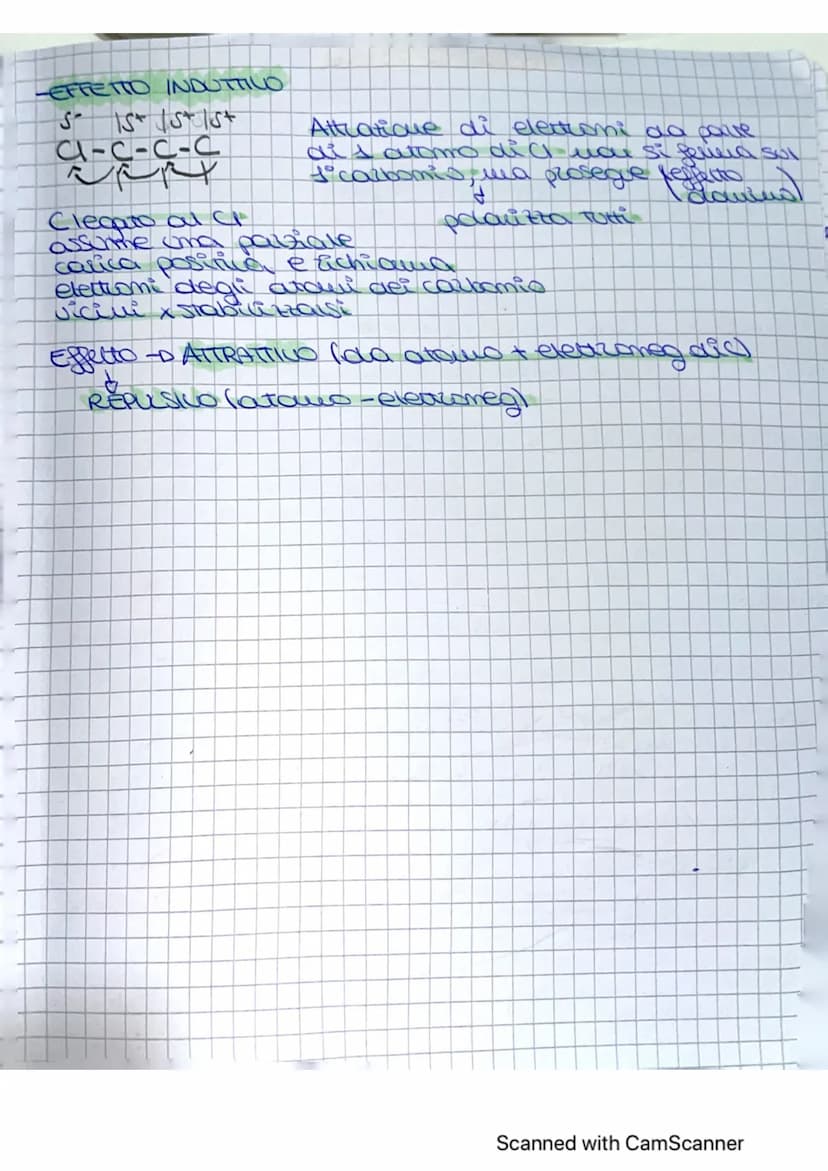 -EFFETTO INDUTTIVO
δ- δ+ δ+ δ+
Cl-C-C-C
Attrazione di elettroni da parte
di 1 atomo di Cl non si ferma sul
1° carbonio, ma prosegue (effetto
domino)
↓
polarizza tutti
C legato al Cl
assume una parziale
carica positiva e richiama
elettroni degli atomi dei carbonio
vicini x stabilizzarsi
Effetto → ATTRATTIVO (da atomo + elettroneg di C)
↓
REPULSIVO (atomo - elettroneg)
Scanned with CamScanner